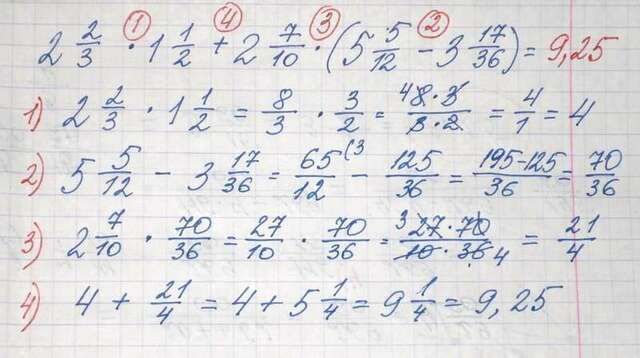 2 2/3 · 1 1/2 + 2 7/10 · (5 5/12 − 3 17/36) = 9,25
1) 2 2/3 · 1 1/2 = 8/3 · 3/2 = 8·3/3·2 = 4/1 = 4
2) 5 5/12 − 3 17/36 = 65/12 − 125/36 = 195−125/36 = 70/36
3) 2 7/10 · 70/36 = 27/10 · 70/36 = 27·70/10·36 = 21/4
4) 4 + 21/4 = 4 + 5 1/4 = 9 1/4 = 9,25